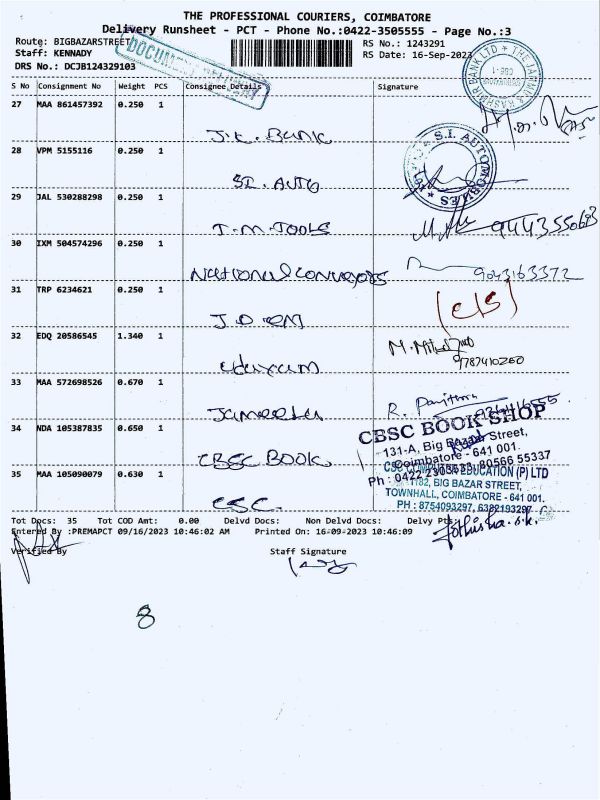 THE PROFESSIONAL COURIERS, COIMBATORE
Delivery Runsheet - PCT - Phone No.:0422-3505555 - Page No.:3
Route: BIGBAZARSTREET
RS No.: 1243291
Staff: KENNADY
RS Date: 16-Sep-2023
DRS No.: DCJB124329103
DOCUMENT DELIVERY
S No Consignment No Weight PCS Consignee Details Signature
27 MAA 861457392 0.250 1
J.K. BANK
28 VPM 5155116 0.250 1
S.I. AUTOMOBILES
SI. AUTO
29 JAL 530288298 0.250 1
T.M.TOOLS
9443550683
30 IXM 504574296 0.250 1
National conveyors
9043163372
31 TRP 6234621 0.250 1
(C/S)
32 EDQ 20586545 1.340 1
9787410260
udayam
33 MAA 572698526 0.670 1
34 NDA 105387835 0.650 1
CBSC BOOK
CBSC BOOK SHOP
131-A, Big Bazaar Street,
Coimbatore - 641 001.
Ph : 0422 2303633, 80566 55337
35 MAA 105090079 0.630 1
CSC
CSC COMPUTER EDUCATION (P) LTD
1182, BIG BAZAR STREET,
TOWNHALL, COIMBATORE - 641 001.
PH : 8754093297, 6382193297
Tot Docs: 35 Tot COD Amt: 0.00 Delvd Docs: Non Delvd Docs: Delvy Pts:
Entered By :PREMAPCT 09/16/2023 10:46:02 AM Printed On: 16-09-2023 10:46:09
Verified By Staff Signature
8